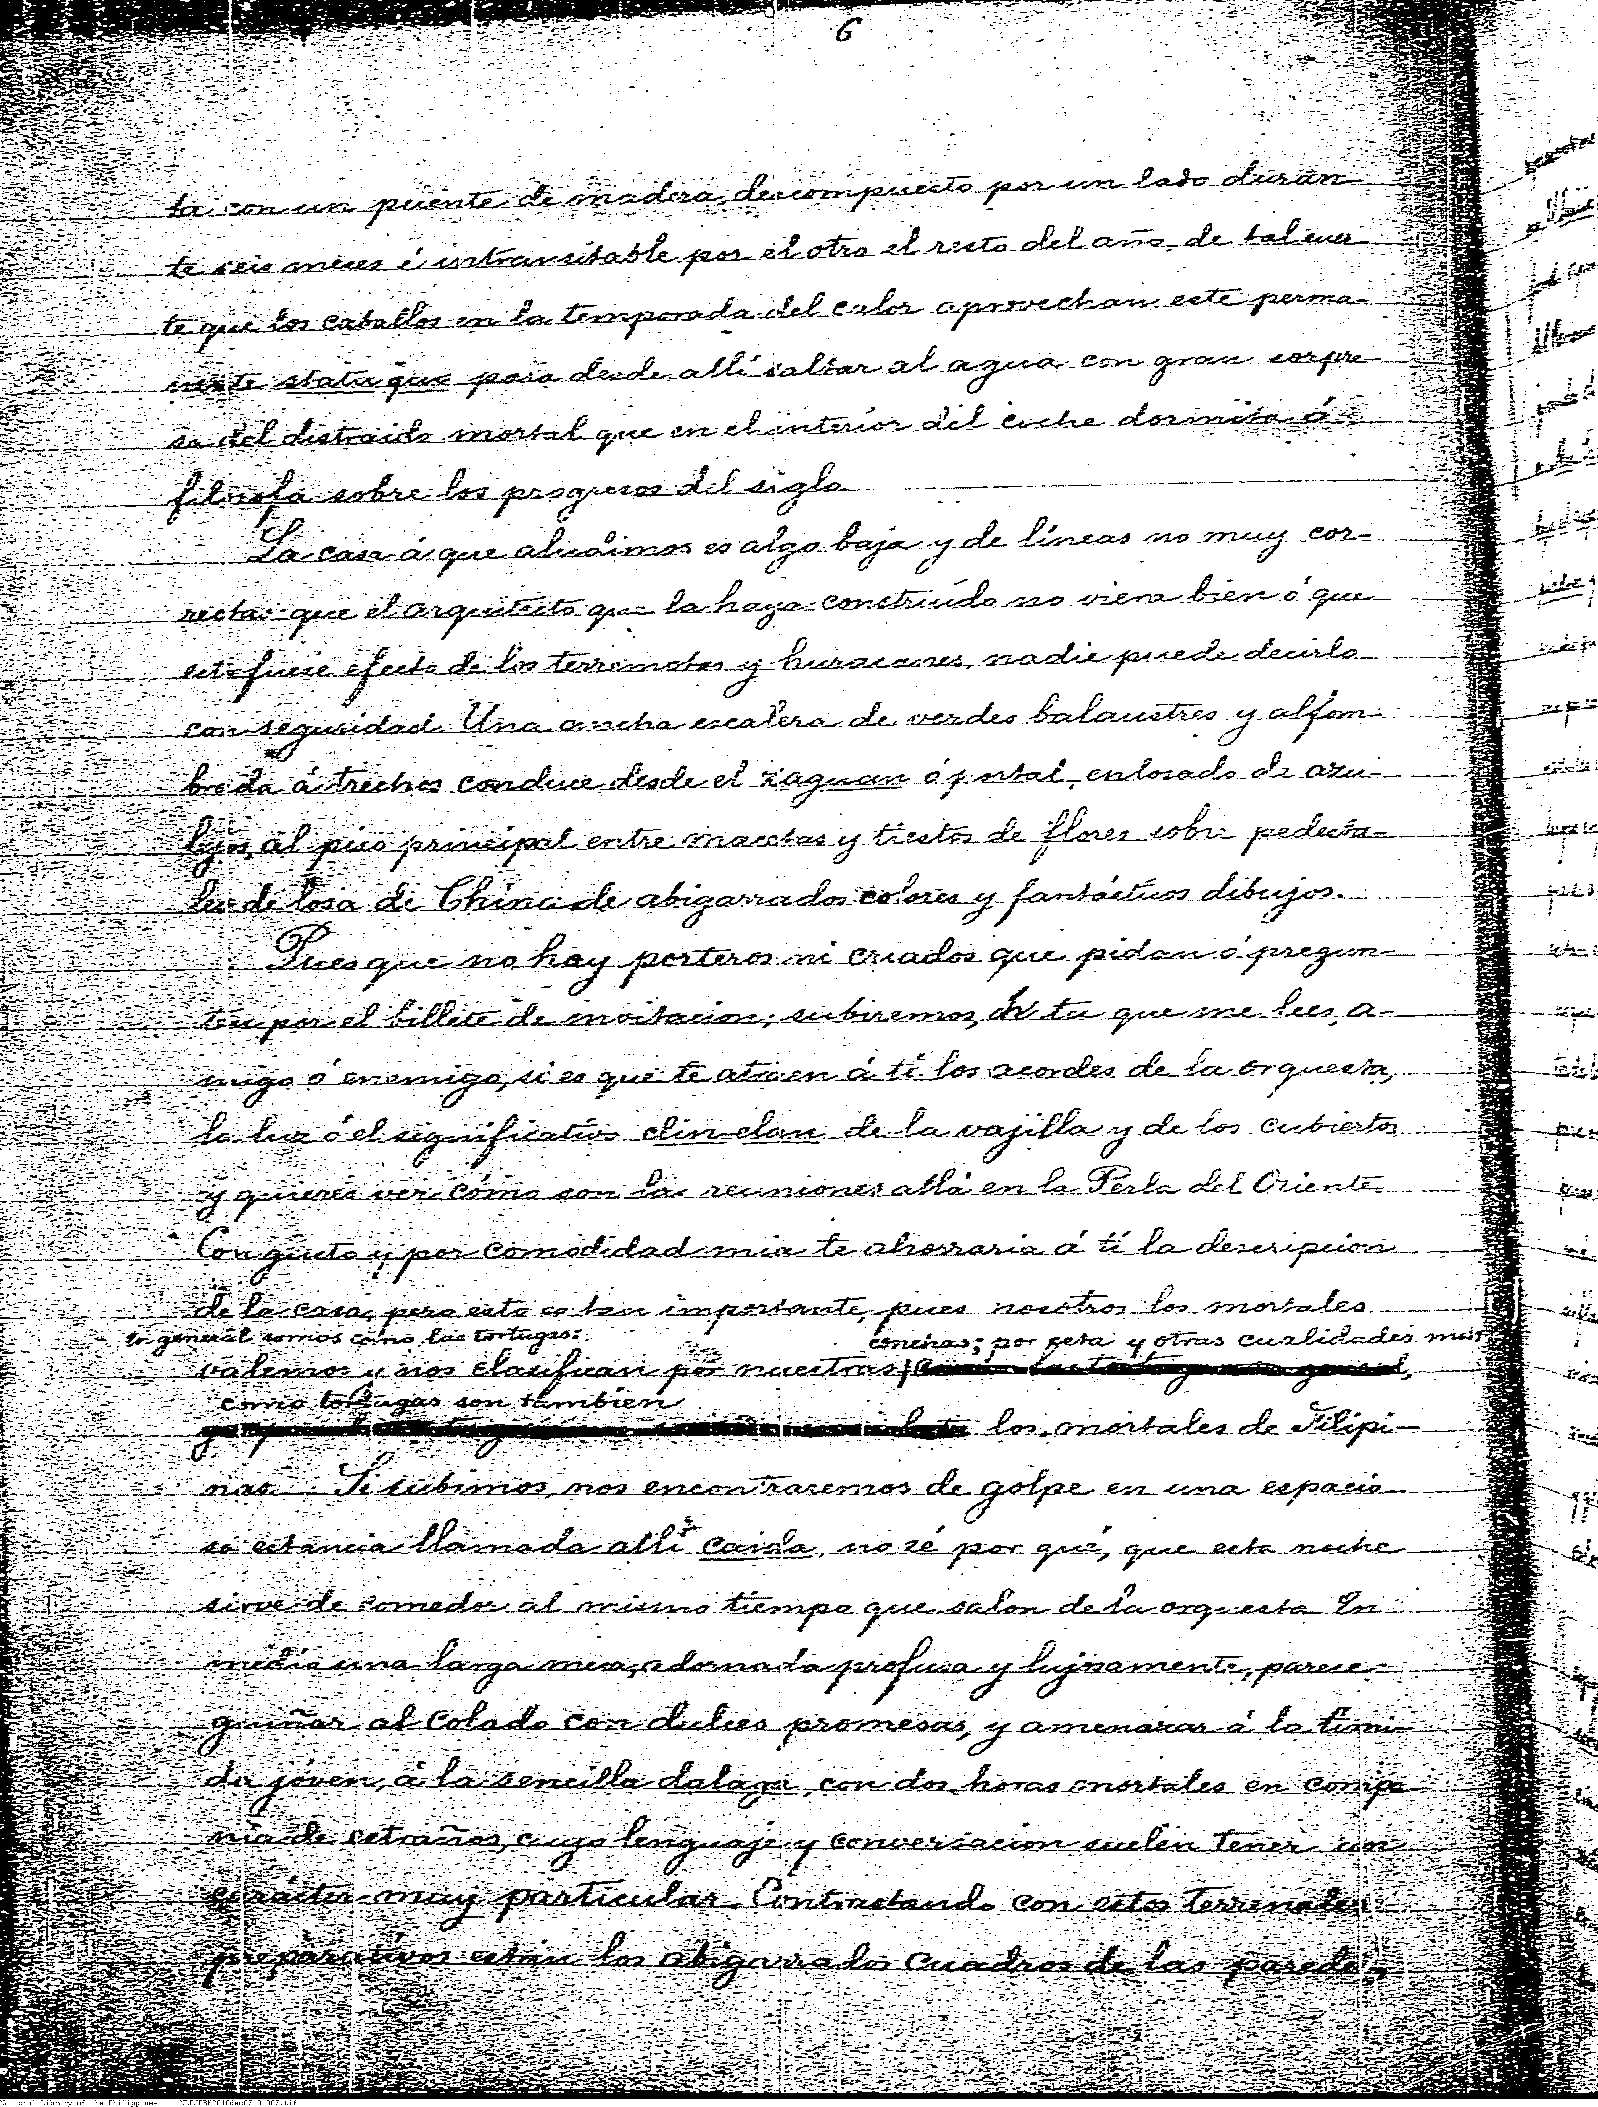 6
ta con un puente de madera, descompuesto por un lado duran
te seis meses é intransitable por el otro el resto del año, de tal suer
te que los caballos en la temporada del calor aprovechan este perma-
nente statu quo para desde allí saltar al agua con gran sorpre
sa del distraido mortal que en el interior del coche dormita ó
filosofa sobre los progresos del siglo
La casa á que aludimos es algo baja y de líneas no muy cor-
rectas: que el arquitecto que la haya construído no viera bien ó que
esto fuese efecto de los terremotos y huracanes, nadie puede decirlo
con seguridad. Una ancha escalera de verdes balaustres y alfom-
brada á trechos conduce desde el zaguan ó portal, enlosado de azu-
lejos, al piso principal entre macetas y tiestos de flores sobre pedesta-
les de losa de China de abigarrados colores y fantásticos dibujos.
Pues que no hay porteros ni criados que pidan ó pregun-
ten por el billete de invitacion, subiremos, oh tu que me lees, a-
migo ó enemigo, si es que te atraen á tí los acordes de la orquesta,
la luz ó el significativo clin-clan de la vajilla y de los cubiertos
y quieres ver cómo son las reuniones allá en la Perla del Oriente.
Con gusto y por comodidad mia te ahorraria á tí la descripcion
de la casa, pero esto es tan importante, pues nosotros los mortales
en general somos como las tortugas:
valemos y nos clasifican por nuestras conchas; por esta y otras cualidades mas
como tortugas son tambien
los mortales de Filipi-
nas. Si subimos, nos encontraremos de golpe en una espacio-
sa estancia llamada allí caida, no sé por qué, que esta noche
sirve de comedor al mismo tiempo que salon de la orquesta. En
medio una larga mesa, adornada profusa y lujosamente, parece
guiñar al colado con dulces promesas, y amenazar á la tími-
da jóven, á la sencilla dalaga, con dos horas mortales en compa
ñia de estraños, cuyo lenguaje y conversacion suelen tener un
carácter muy particular. Contrastando con estos terrenales
preparativos están los abigarrados cuadros de las paredes,